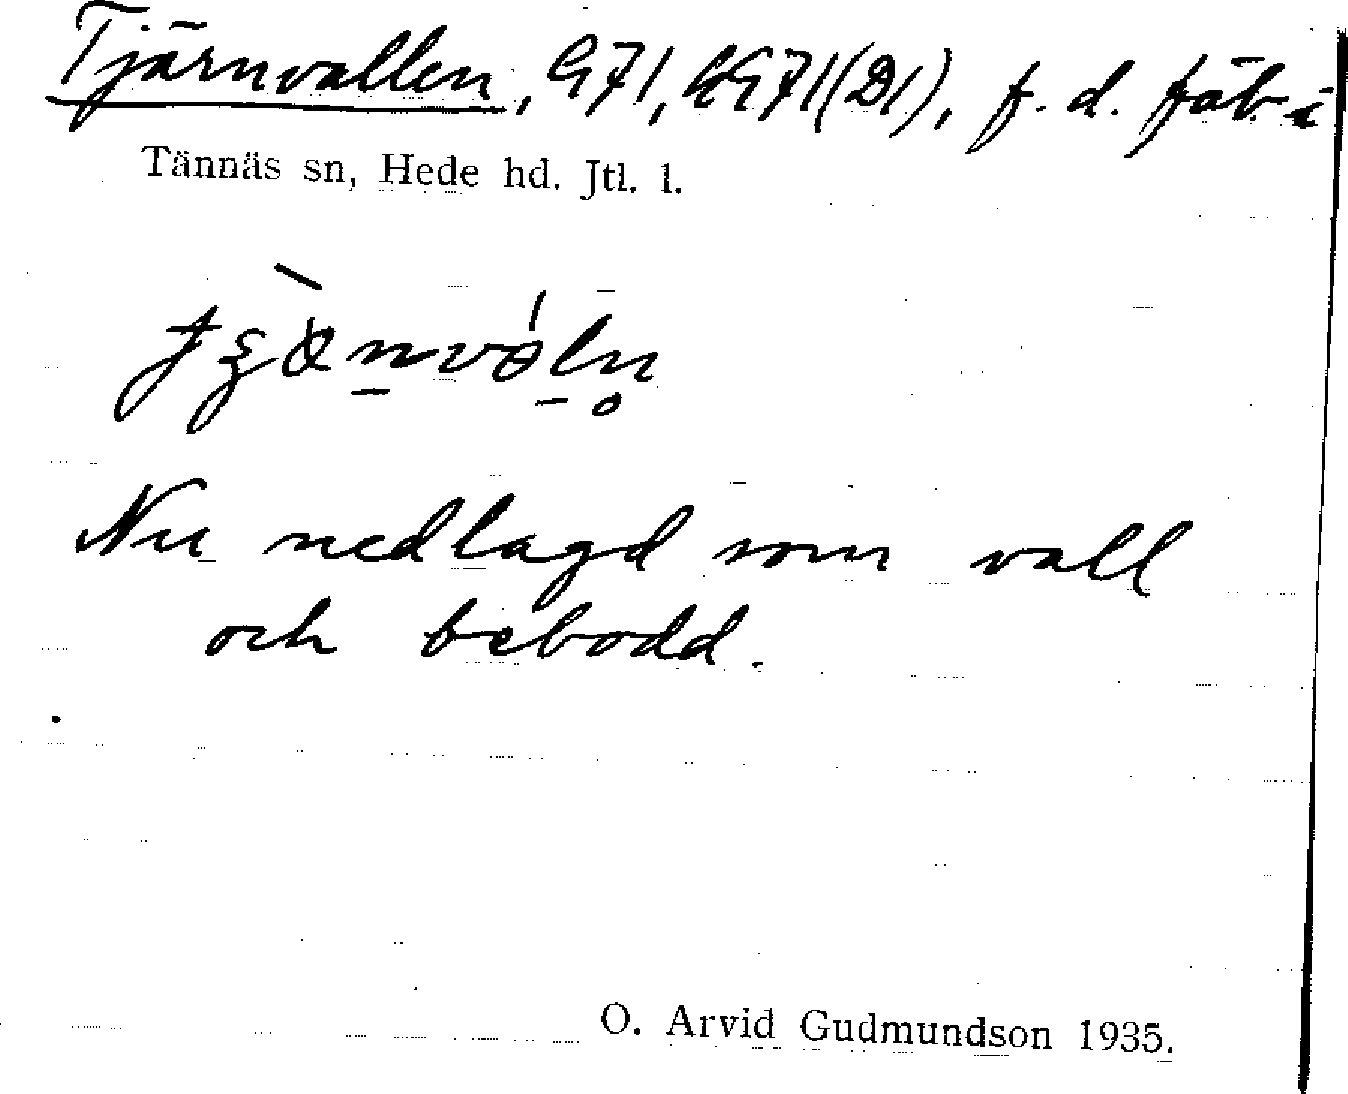 Tjärnvallen, G71, KG71(D1), f. d. fäb. i
Tännäs sn, Hede hd. Jtl. l.
Nu nedlagd som vall
och bebodd.
O. Arvid Gudmundson 1935.